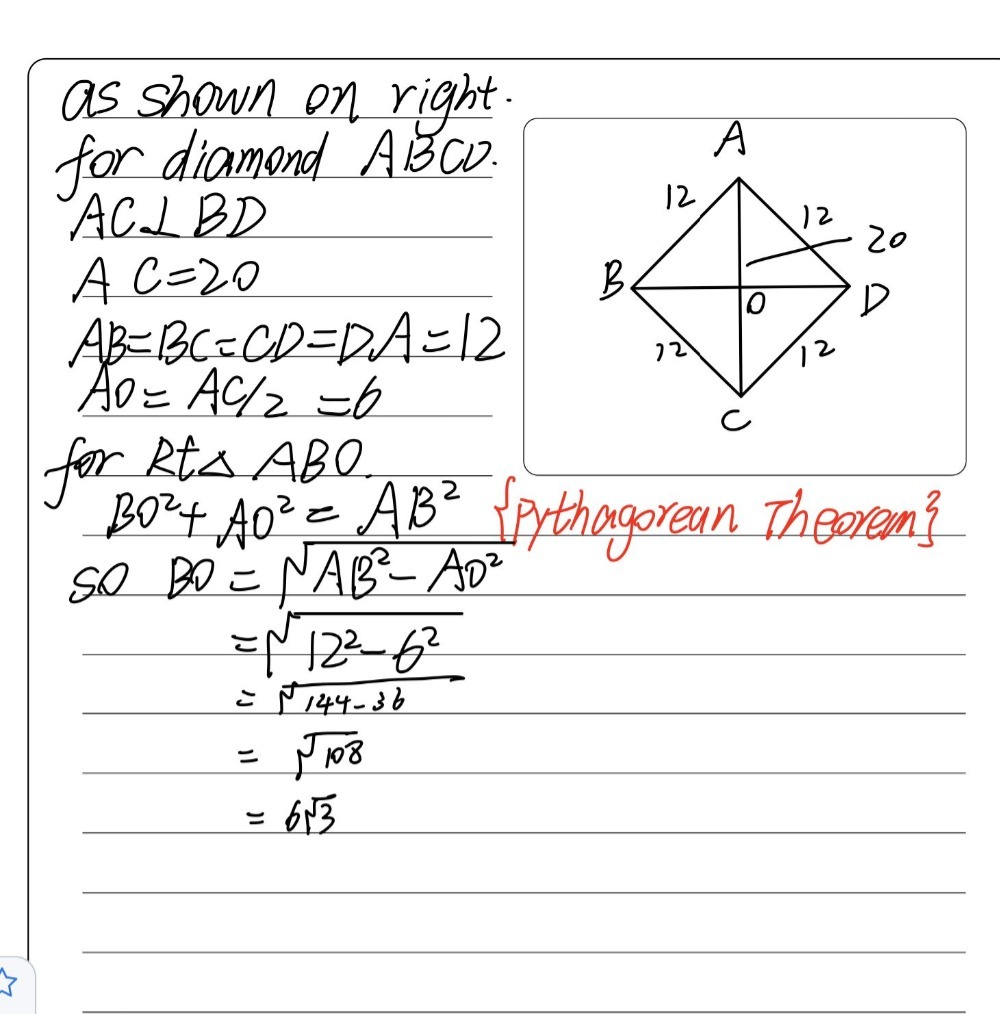 as shown on right.
for diamond ABCD.
AC⊥BD
AC=20
AB=BC=CD=DA=12
AO=AC/2=6
for Rt△ABO.
BO²+AO²=AB² {Pythagorean Theorem}
so BO=√(AB²-AO²)
=√(12²-6²)
=√(144-36)
=√108
=6√3
A
12
12
20
B
O
D
12
12
C